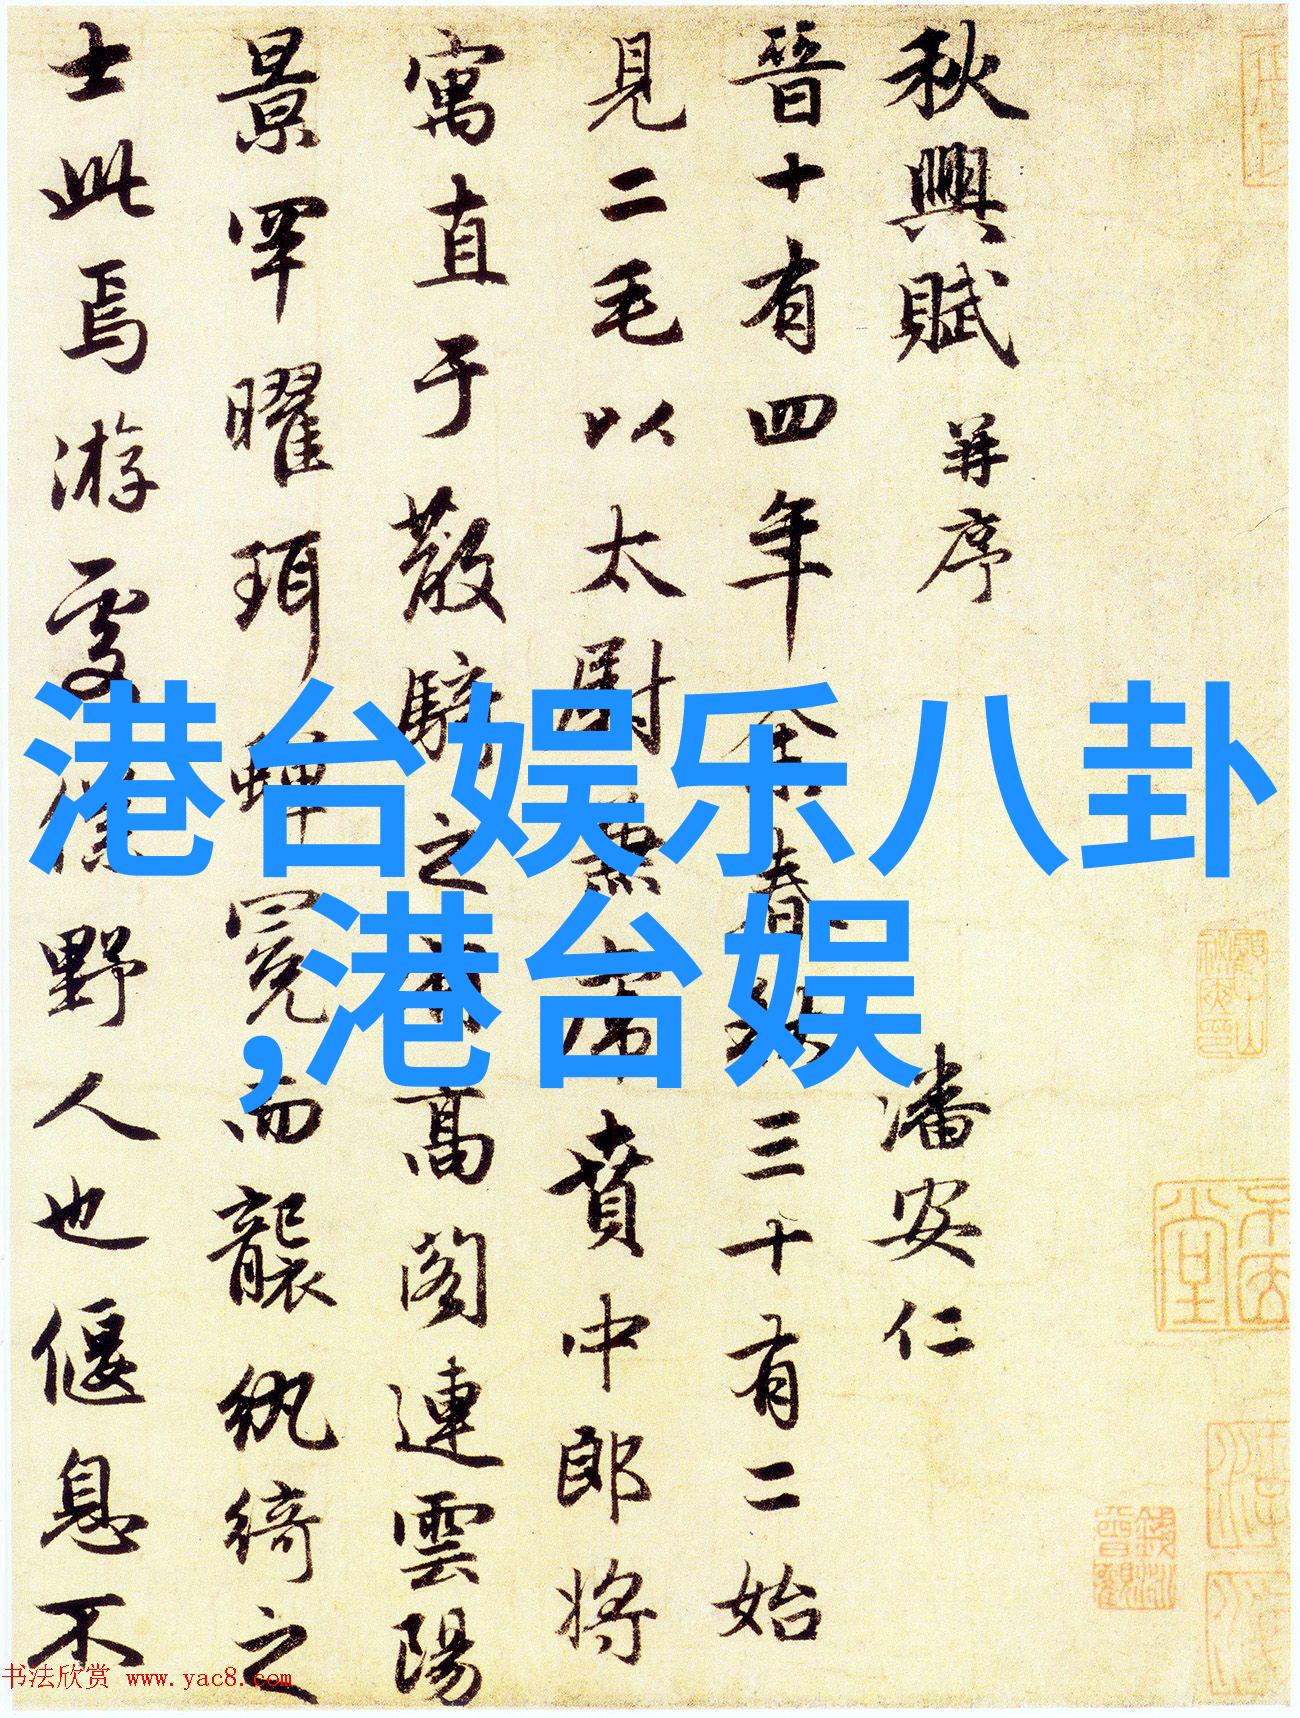 秋興賦 并序 潘安仁
晉十有四年余春秋三十有二始
見二毛以太尉兼虎賁中郎将
寓直于散騎之省高閣連雲陽
景罕曜珥蟬冕而襲紈綺之
士此焉游處僕野人也偃息不
港台娱乐八卦
,港台娱
书法欣赏 www.yac8.com